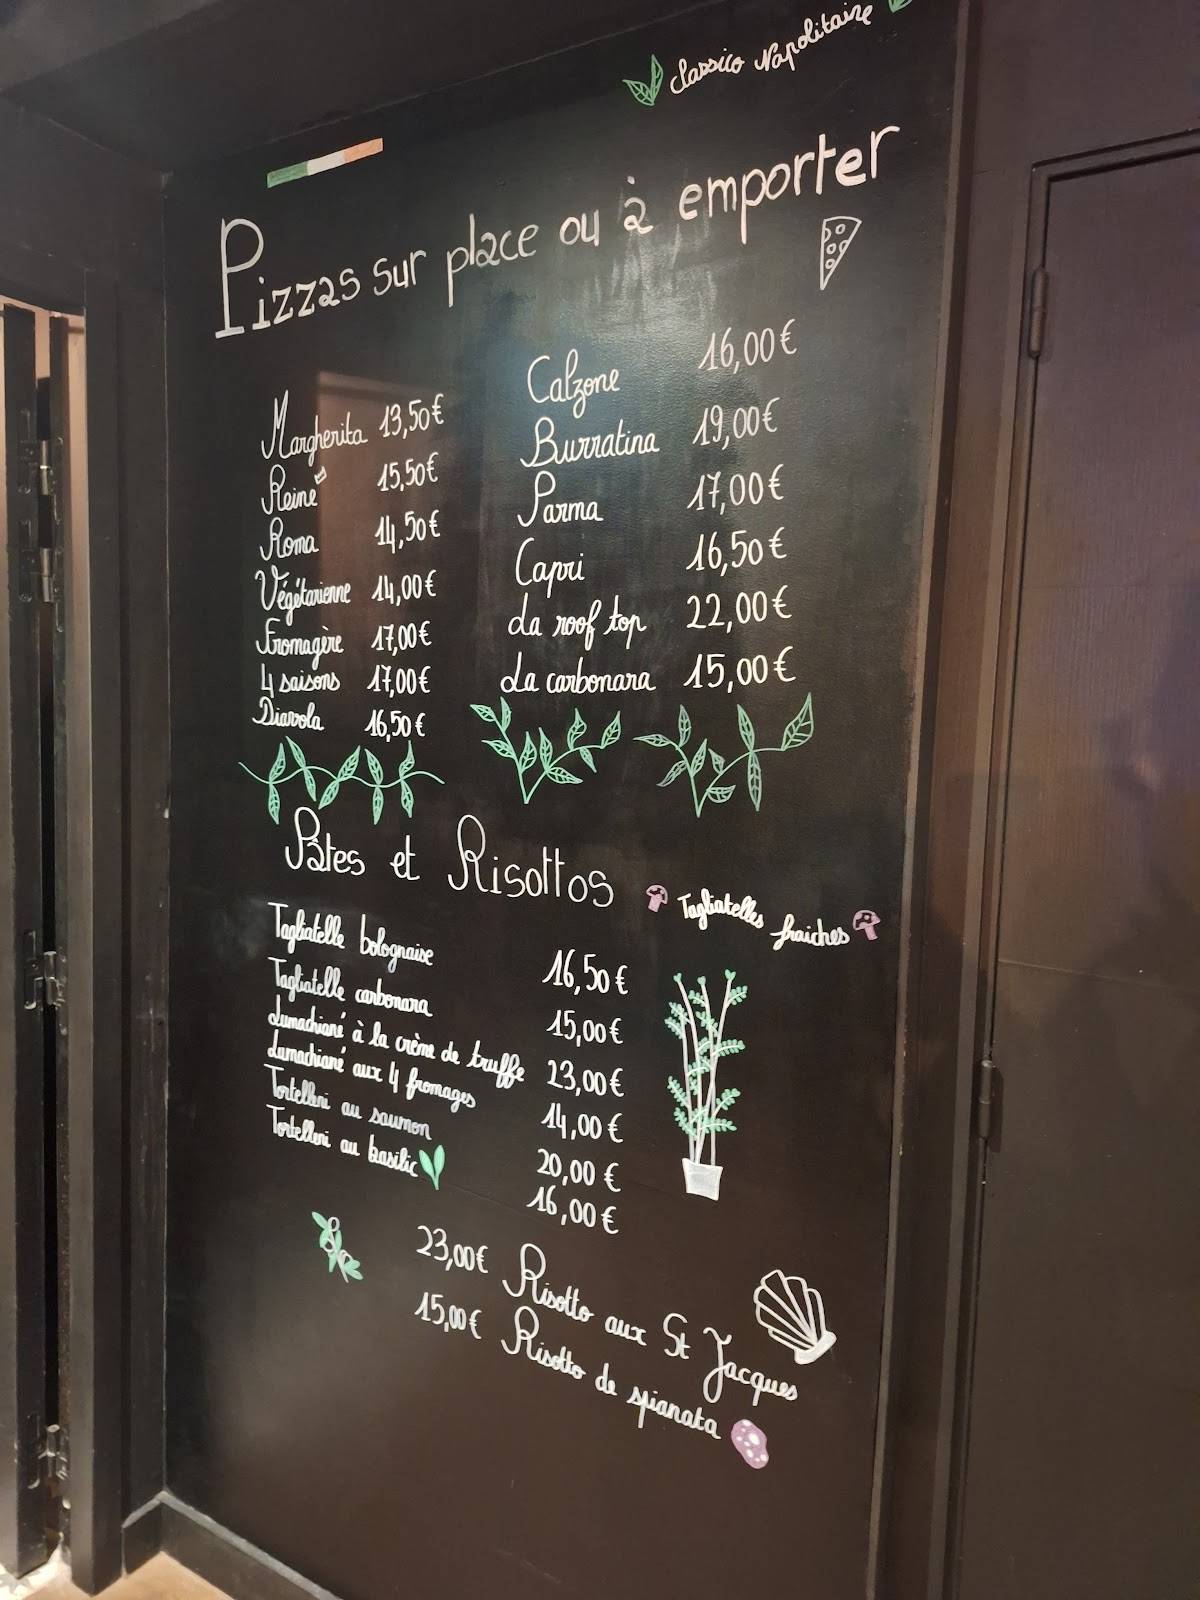 Classico Napolitaine
Pizzas sur place ou à emporter
Margherita 13,50€
Reine 15,50€
Roma 14,50€
Végétarienne 14,00€
Fromagère 17,00€
4 saisons 17,00€
Diavola 16,50€
Calzone 16,00€
Burratina 19,00€
Parma 17,00€
Capri 16,50€
La roof top 22,00€
La carbonara 15,00€
Pâtes et Risottos
Tagliatelles fraiches
Tagliatelle bolognaise 16,50€
Tagliatelle carbonara 15,00€
Lumachiané à la crème de truffe 23,00€
Lumachiané aux 4 fromages 14,00€
Tortelleni au saumon 20,00€
Tortelleni au basilic 16,00€
23,00€ Risotto aux St Jacques
15,00€ Risotto de spianata